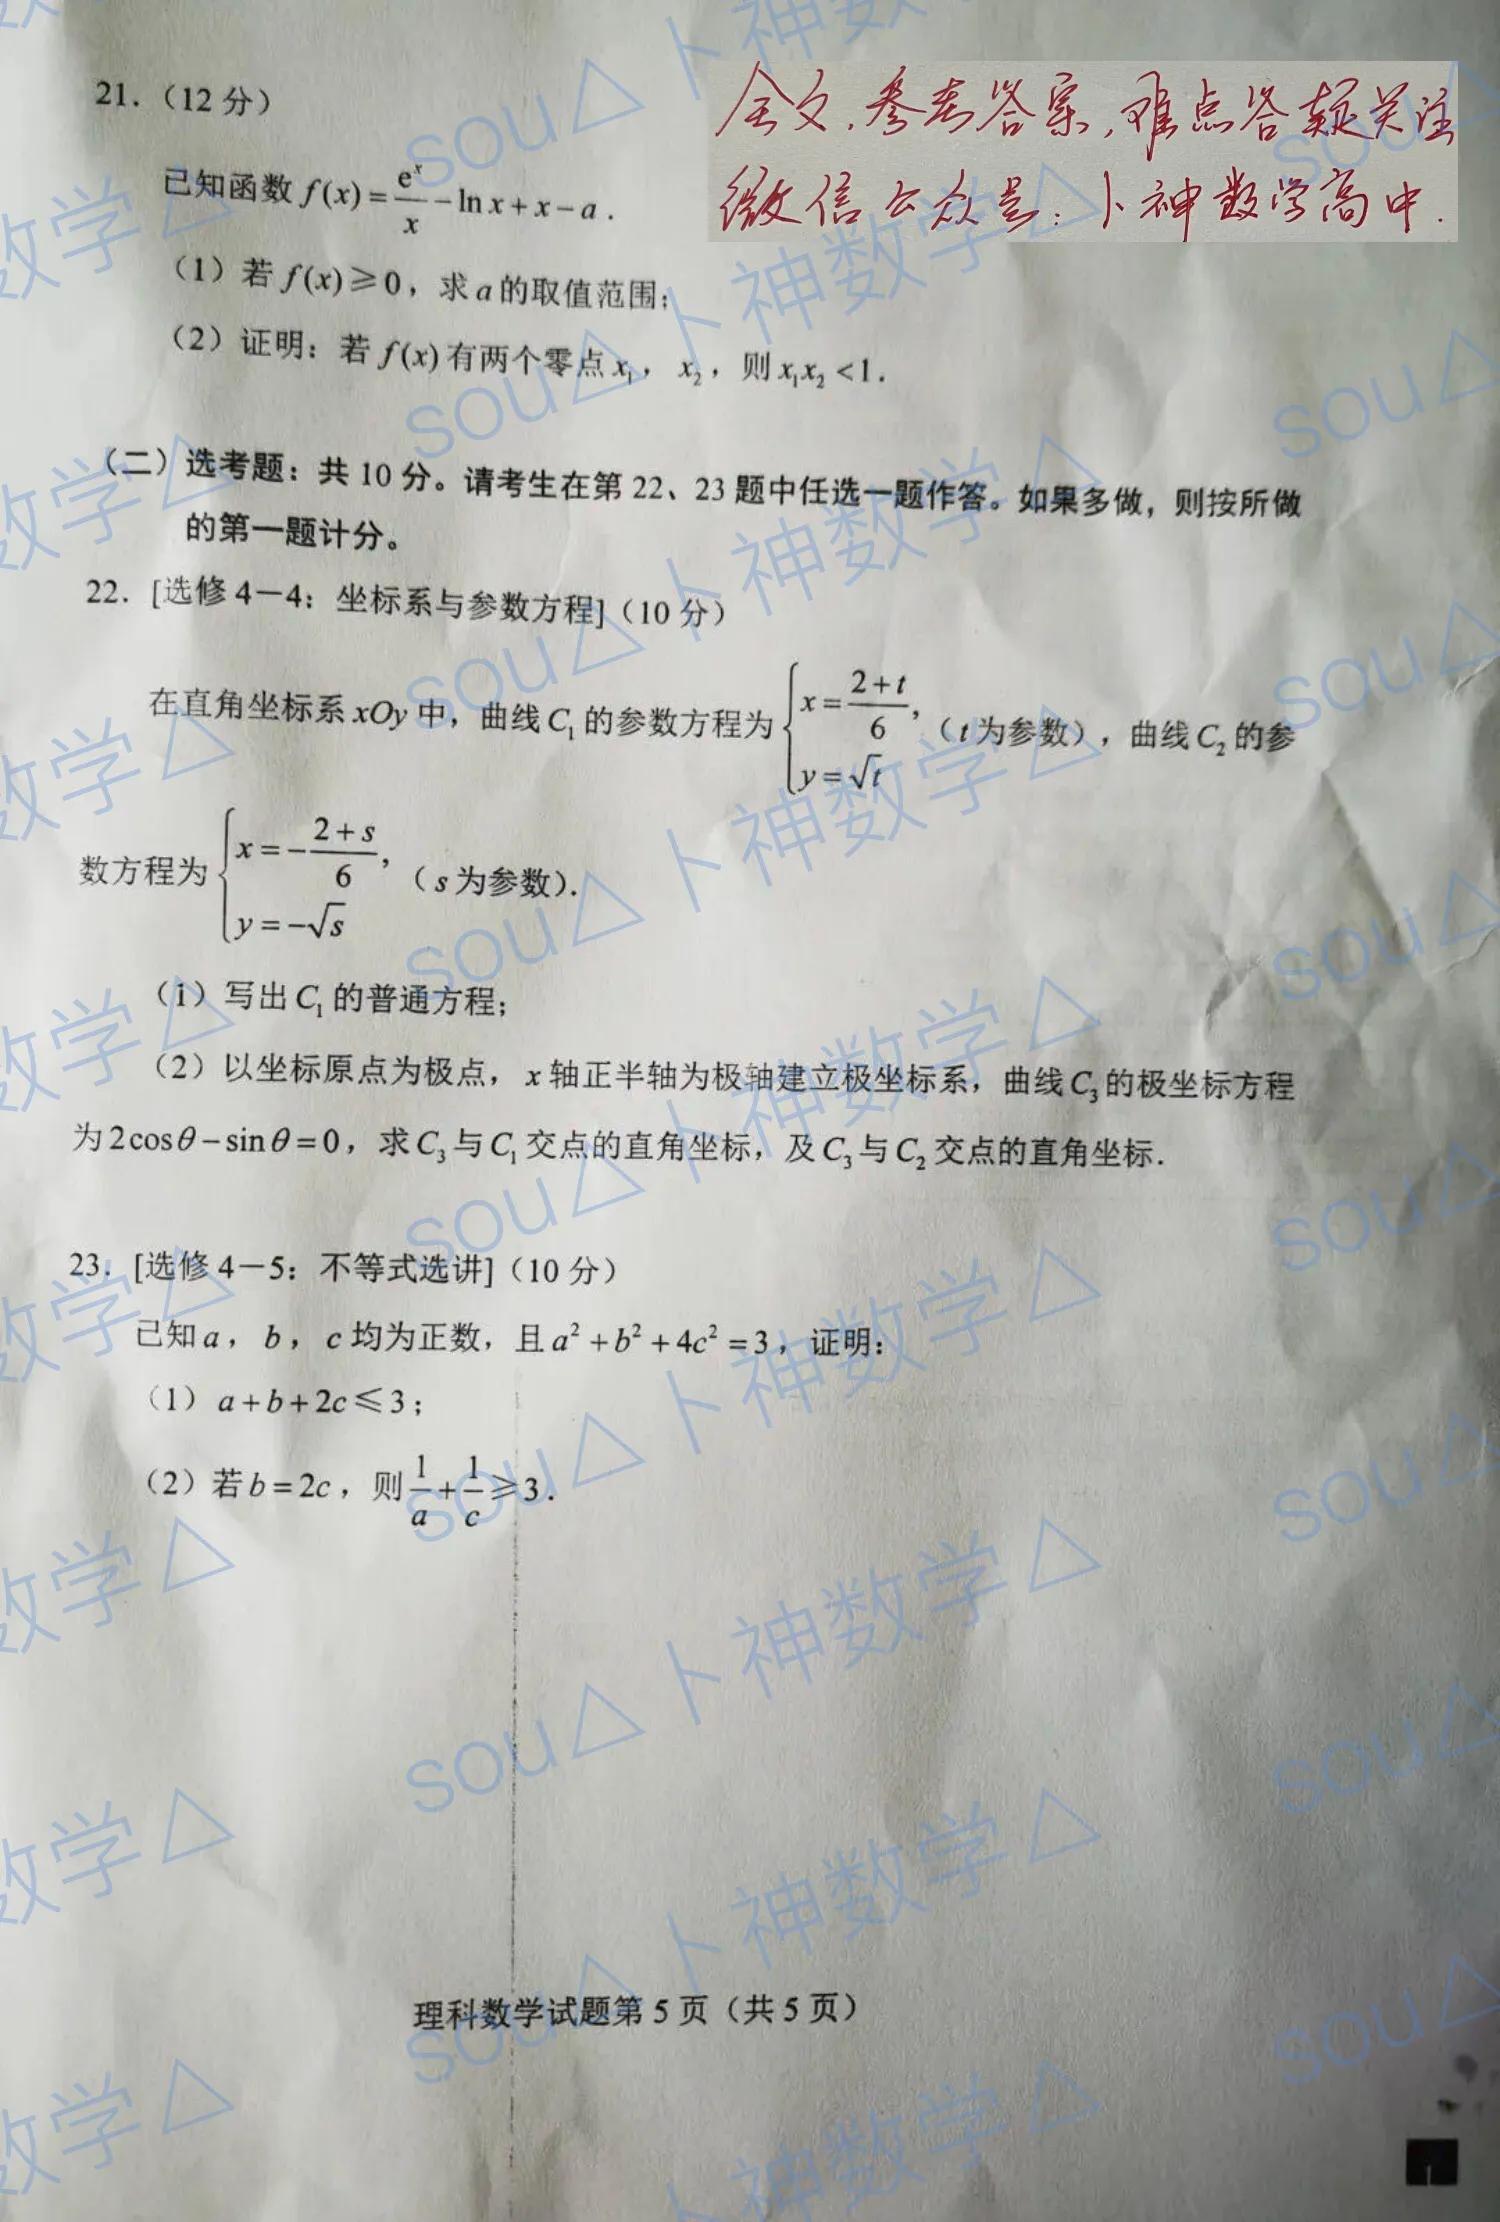 全文、参考答案，难点答疑关注
微信公众号：卜神数学高中.
21.（12 分）
已知函数 f(x) = e^x/x − ln x + x − a .
（1）若 f(x) ⩾ 0，求 a 的取值范围；
（2）证明：若 f(x) 有两个零点 x₁， x₂，则 x₁x₂ < 1.
（二）选考题：共 10 分。请考生在第 22、23 题中任选一题作答。如果多做，则按所做
的第一题计分。
22. [选修 4－4：坐标系与参数方程]（10 分）
在直角坐标系 xOy 中，曲线 C₁ 的参数方程为 { x = (2+t)/6, y = √t （t 为参数），曲线 C₂ 的参
数方程为 { x = −(2+s)/6, y = −√s （s 为参数）.
（1）写出 C₁ 的普通方程；
（2）以坐标原点为极点，x 轴正半轴为极轴建立极坐标系，曲线 C₃ 的极坐标方程
为 2cosθ − sinθ = 0，求 C₃ 与 C₁ 交点的直角坐标，及 C₃ 与 C₂ 交点的直角坐标.
23. [选修 4－5：不等式选讲]（10 分）
已知 a， b， c 均为正数，且 a² + b² + 4c² = 3，证明：
（1）a + b + 2c ⩽ 3；
（2）若 b = 2c，则 1/a + 1/c ⩾ 3.
理科数学试题第 5 页（共 5 页）
sou△卜神数学△